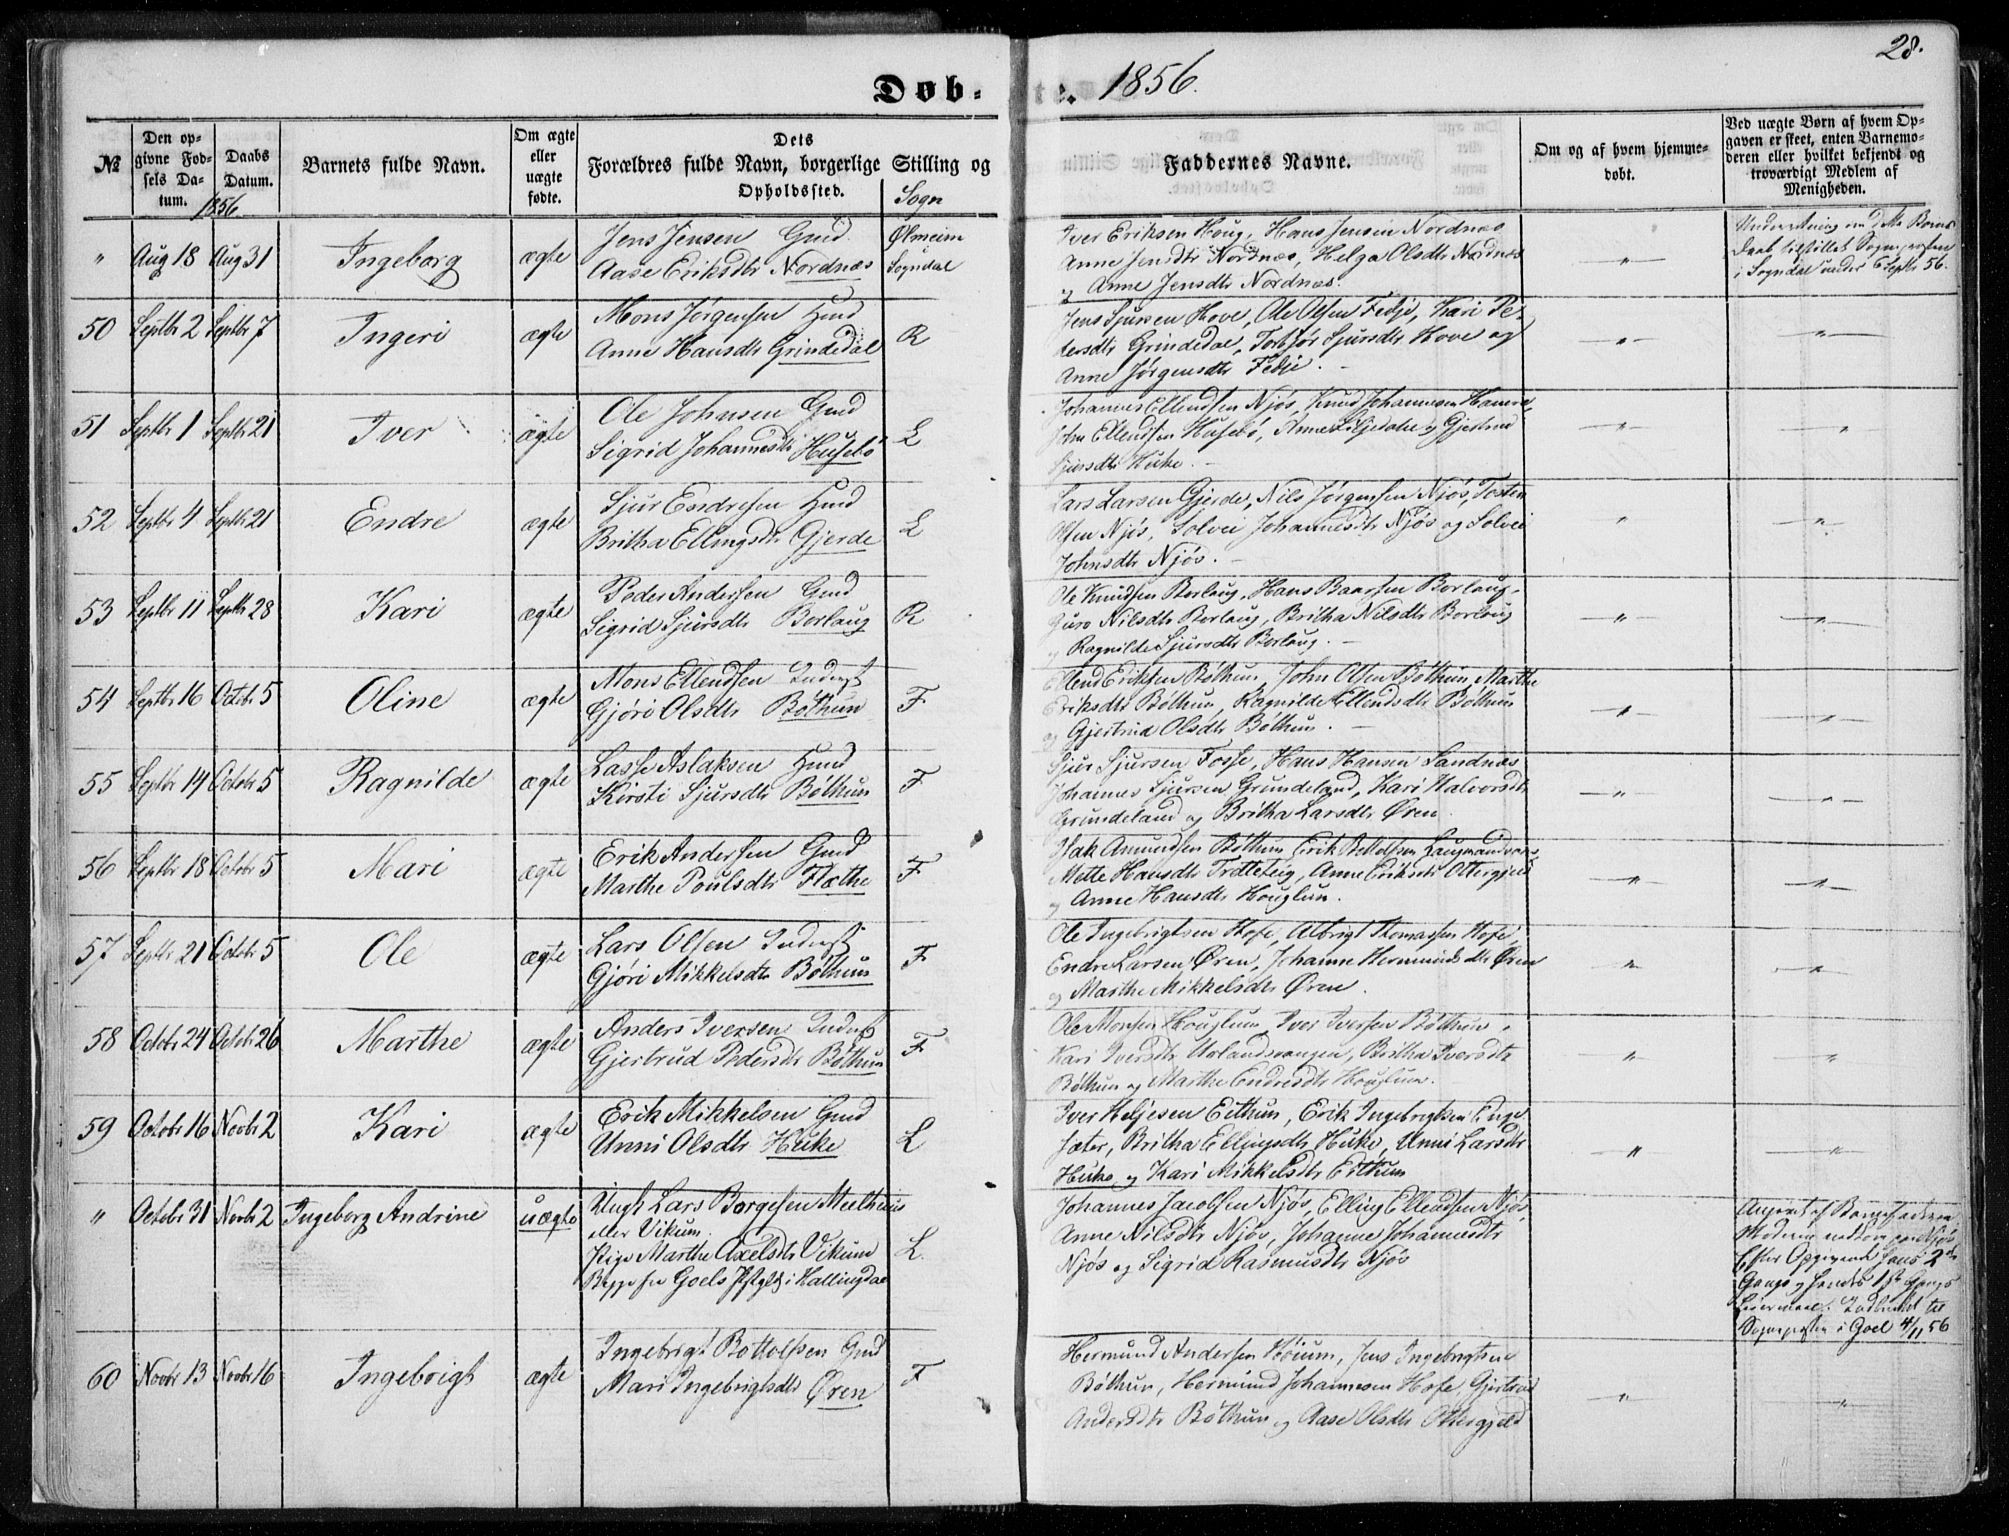 28.
Døb-
te. 1856.
№
Den op-
givne Fød-
sels Da-
tum.
1856
Daabs
Datum.
Barnets fulde Navn.
Om ægte
eller
uægte
fødte.
Dets
Forældres fulde Navn, borgerlige Stilling og
Opholdssted.
Sogn
Faddernes Navne.
Om og af hvem hjemme-
døbt.
Ved uægte Børn af hvem Op-
gaven er skeet, enten Barnemo-
deren eller hvilket bekjendt og
troværdigt Medlem af
Menigheden.
" Aug 18 Aug 31 Ingeborg ægte
Jens Jensen Gmd.
Aase Eriksdtr Nordnæs
Ølmeim
Sogndal
Iver Eriksen Houg, Hans Jensen Nordnæs
Anne Jensdtr Nordnæs, Helga Olsdtr Nordnæs
og Anne Jensdtr Nordnæs.
"
Underretning om dette Barns
Daab tilstillet Sognepræsten
i Sogndal under 6 Septbr 56.
50 Septbr 2 Septbr 7 Ingeri ægte
Mons Jørgensen Hmd
Anne Hansdtr Grindedal
R
Jens Sjursen Hove, Ole Olsen Fedje, Kari Pe-
dersdtr Grindedal, Torbjør Sjursdtr Hove og
Anne Jørgensdtr Fedje.
" "
51 Septbr 1 Septbr 21 Iver ægte
Ole Johnsen Gmd
Sigrid Johannesdtr Husebø
L
Johannes Ellendsen Njøs, Knud Johannesen
John Ellendsen Husebø, Anne og Gjertrud
Sjursdtr Huke.
" "
52 Septbr 4 Septbr 21 Endre ægte
Sjur Endresen Hmd
Britha Ellingsdtr Gjerde
L
Lars Larsen Gjerde, Nils Jørgensen Njøs, Tosten
Olsen Njøs, Solvei Johannesdtr Njøs og Solvei
Johnsdtr Njøs.
" "
53 Septbr 11 Septbr 28 Kari ægte
Peder Andersen Gmd
Sigrid Sjursdtr Borlaug
R
Ole Knudsen Borlaug, Hans Baarsen Borlaug,
Guro Nilsdtr Borlaug, Britha Nilsdtr Borlaug
og Ragnilde Sjursdtr Borlaug.
" "
54 Septbr 16 Octobr 5 Oline ægte
Mons Ellendsen Inderst
Gjøri Olsdtr Bøthun
F
Ellend Eriksen Bøthun, John Olsen Bøthun, Marthe
Eriksdtr Bøthun, Ragnilde Ellendsdtr Bøthun
og Gjertrud Olsdtr Bøthun.
" "
55 Septbr 14 Octobr 5 Ragnilde ægte
Lasse Aslaksen Hmd
Kirsti Sjursdtr Bøthun
F
Sjur Sjursen Fosse, Hans Hansen Sandnæs
Johannes Sjursen Grundeland, Kari Halvorsdtr
Grundeland og Britha Larsdtr Øren.
" "
56 Septbr 18 Octobr 5 Mari ægte
Erik Andersen Gmd
Marthe Poulsdtr Flæthe
F
Isak Amundsen Bøthun, Erik Bottolfsen
Mette Hansdtr Trætteteig, Anne Eriksdtr Ottergjeld
og Anne Hansdtr Houglum.
" "
57 Septbr 21 Octobr 5 Ole ægte
Lars Olsen Inderst
Gjøri Mikkelsdtr Bøthun
F
Ole Ingebrigtsen Hofe, Albrigt Thomassen Hofe,
Endre Larsen Øren, Johanne Hermundsdtr Øren
og Marthe Mikkelsdtr Øren.
" "
58 Octobr 24 Octobr 26 Marthe ægte
Anders Iversen Inderst
Gjertrud Pedersdtr Bøthun
F
Ole Monsen Houglum, Iver Iversen Bøthun,
Kari Iversdtr Urlandsvangen, Britha Iversdtr
Bøthun og Marthe Endresdtr Houglum.
" "
59 Octobr 16 Novbr 2 Kari ægte
Erik Mikkelsen Gmd
Unni Olsdtr Huke
L
Iver Heljesen Eithun, Erik Ingebrigtsen Enge
sæter, Britha Ellingsdtr Huke, Unni Larsdtr
Huke og Kari Mikkelsdtr Eithun
" "
" Octobr 31 Novbr 2 Ingeborg Andrine uægte
Ungk Lars Børgesen Meelhuus
eller Vikum,
Pige Marthe Axelsdtr Vikum
Begge fra Goels Pgjld i Hallingdal
L.
Johannes Jacobsen Njøs, Elling Ellendsen Njøs,
Anne Nilsdtr Njøs, Johanne Johannesdtr
Njøs og Sigrid Rasmusdtr Njøs
Angivet af Barnefaderen
Efter Opgivende hans 2det
Gangs og hendes 1ste Gangs
Leiermaal. Indberettet til
Sognepræsten i Goel 4/11 56
60 Novbr 13 Novbr 16 Ingebrigt ægte
Ingebrigt Bottolfsen Gmd
Mari Ingebrigtsdtr Øren
F
Hermund Andersen Høium, Jens Ingebrigtsen
Bøthun, Hermund Johannesen Hofe, Gjertrud
Andersdtr Bøthun og Aase Olsdtr Ottergjeld
" "